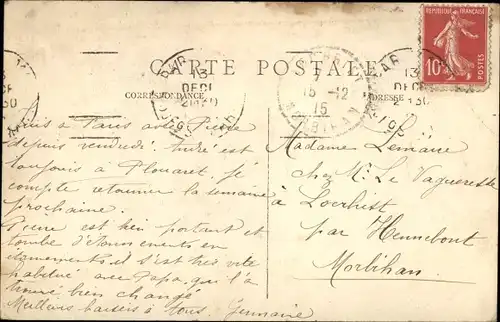 CARTE POSTALE
CORRESPONDANCE
ADRESSE
RÉPUBLIQUE FRANÇAISE
10c
POSTES
13
DEC
15 -12
15
MORBIHAN
Suis à Paris avec Pierre
depuis vendredi. André est
toujours à Plouaret. Je
compte retourner la semaine
prochaine.
Pierre est bien portant et
tombe d'étonnements en
étonnements, il s'est très vite
habitué avec Papa, qui l'a
trouvé bien changé.
Meilleurs baisers à tous. Germaine
Madame Lemaire
chez M. Le
à Locrhist
par Hennebont
Morbihan.